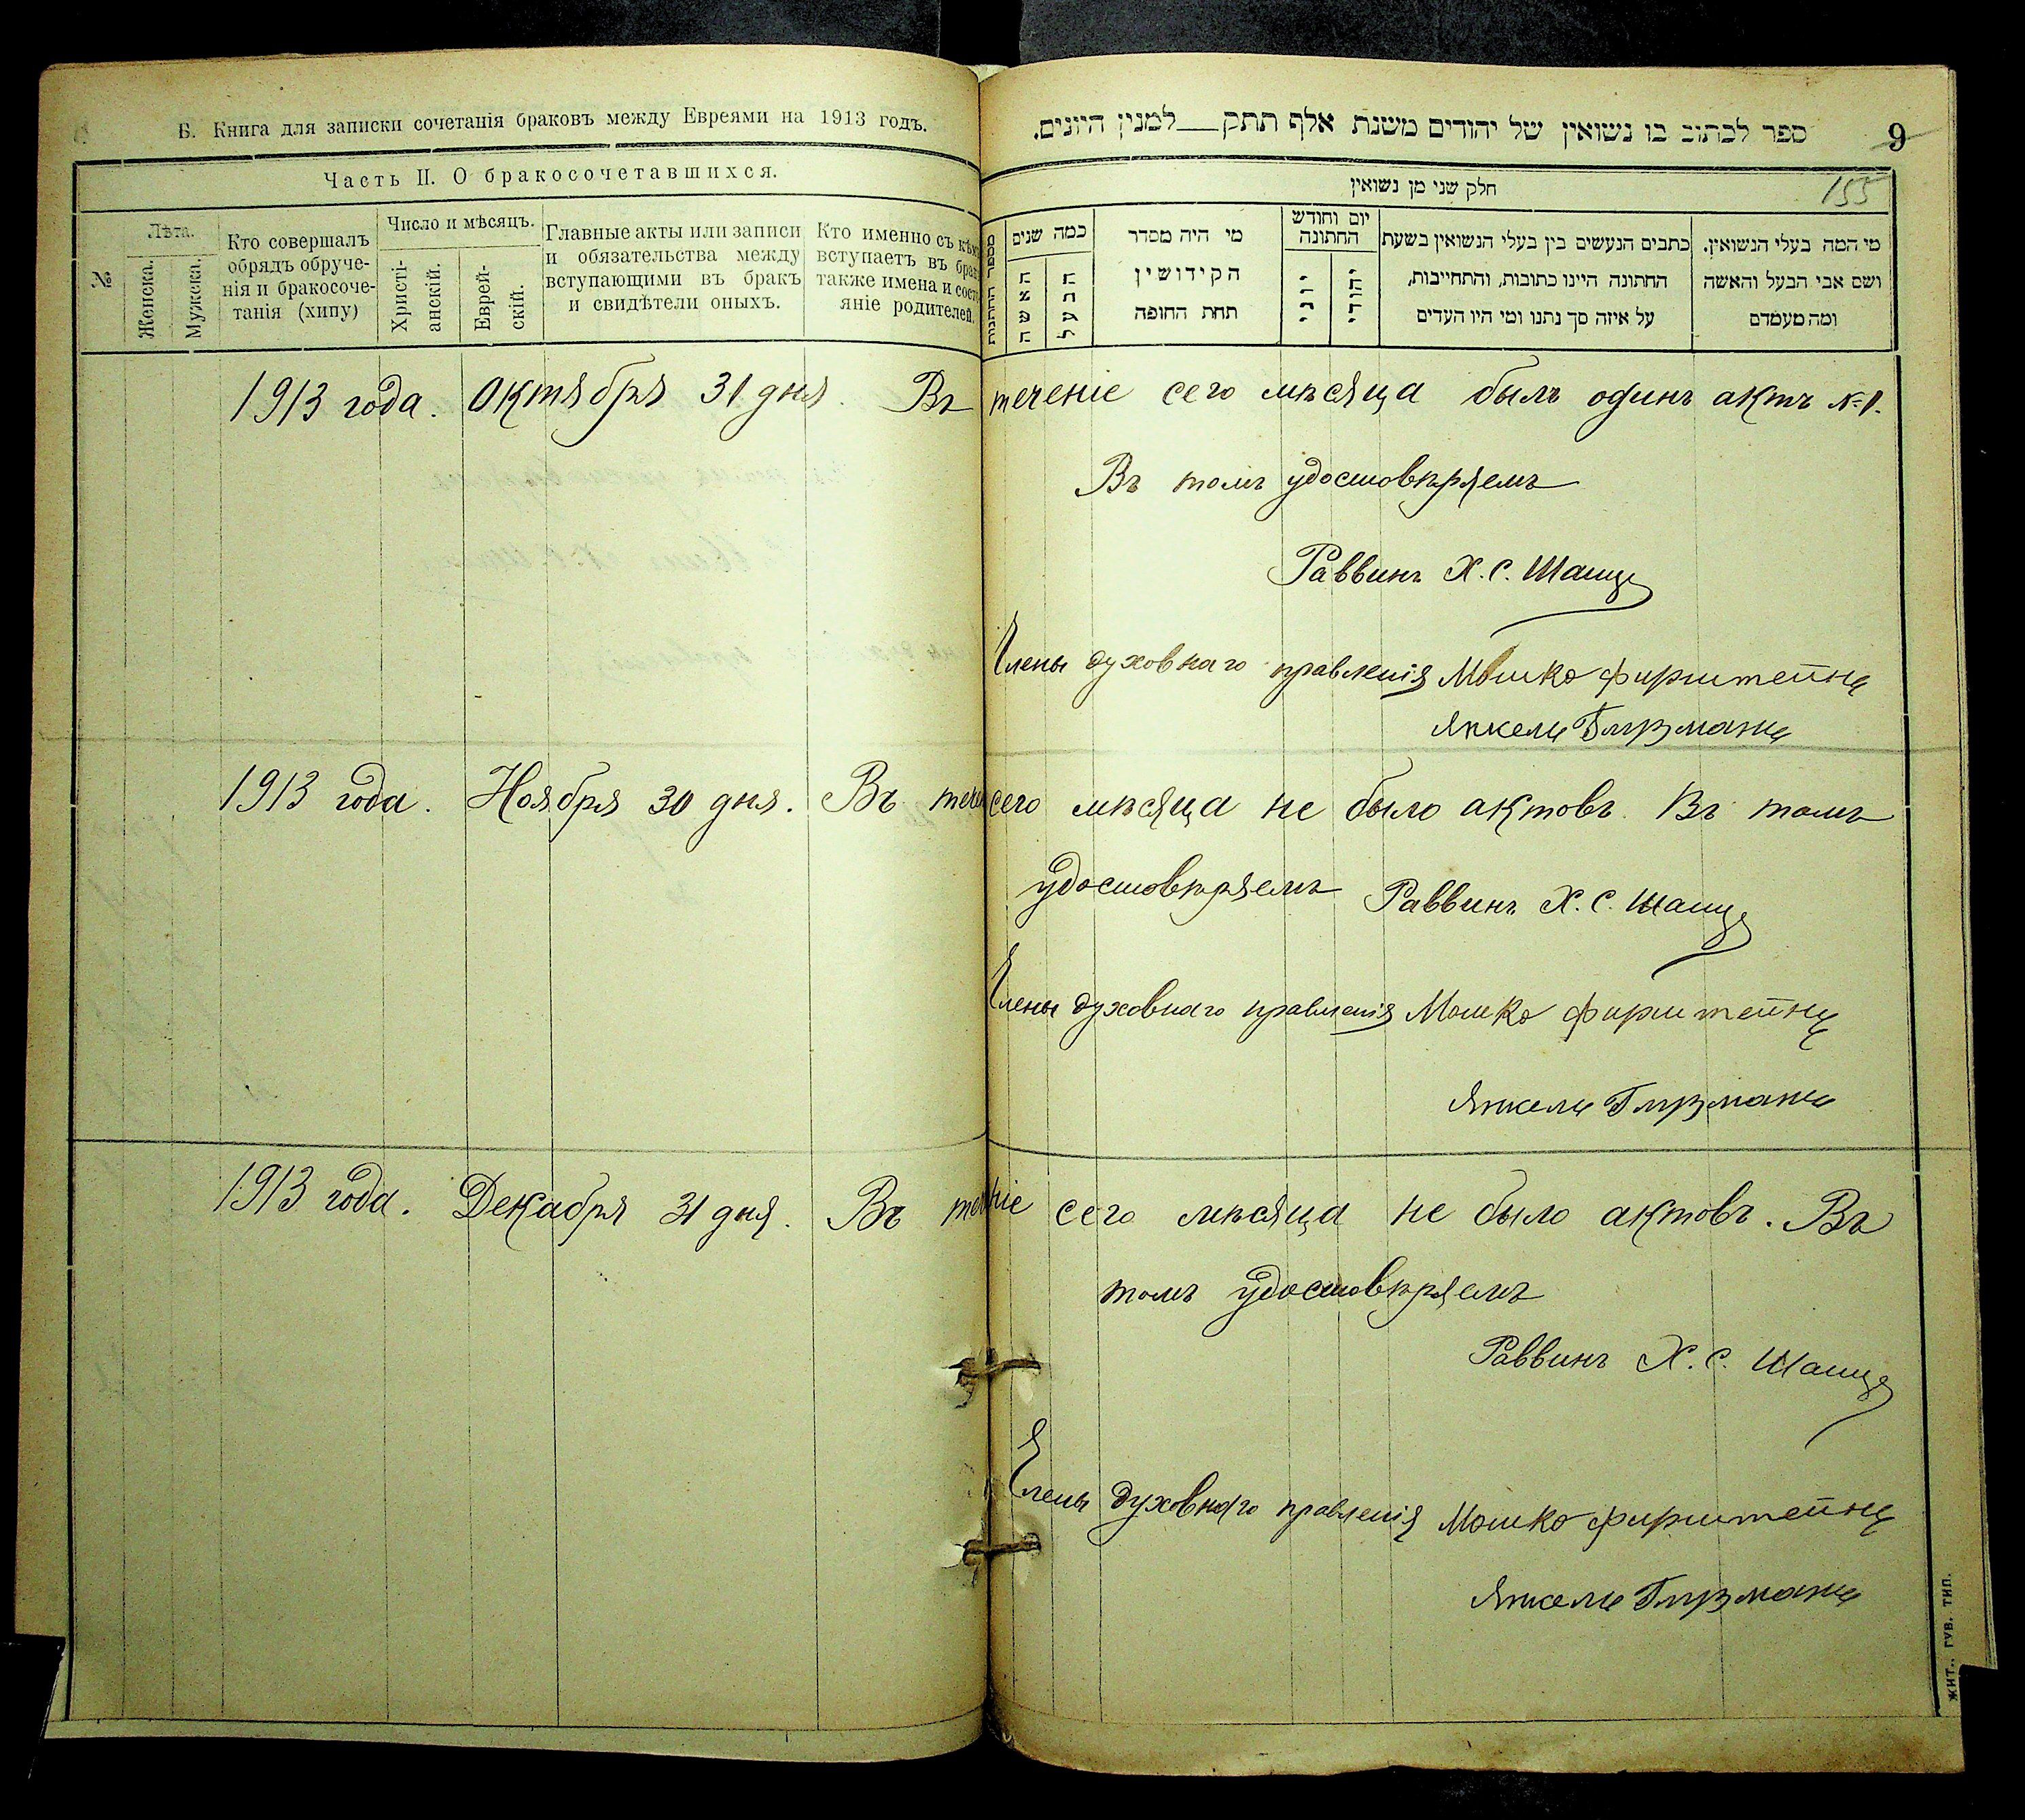 Б. Книга для записки сочетанія браковъ между Евреями на 1913 годъ.
Часть II. О бракосочетавшихся.
№
Лѣта.
Женска.
Мужска.
Кто совершалъ
обрядъ обруче-
нія и бракосоче-
танія (хипу)
Число и мѣсяцъ.
Христі-
анскій.
Еврей-
скій.
Главные акты или записи
и обязательства между
вступающими въ бракъ
и свидѣтели оныхъ.
Кто именно съ кѣмъ
вступаетъ въ бракъ
также имена и состо
яніе родителей.
ספר לכתוב בו נשואין של יהודים משנת אלף תתק___למנין היונים.
9
155
חלק שני מן נשואין
מספר החתונות
כמה שנים
האשה
הבעל
מי היה מסדר
הקידושין
תחת החופה
יום וחודש
החתונה
יוני
יהודי
כתבים הנעשים בין בעלי הנשואין בשעת
החתונה היינו כתובות, והתחייבות,
על איזה סך נתנו ומי היו העדים
מי המה בעלי הנשואין.
ושם אבי הבעל והאשה
ומה מעמדם
1913 года. Октября 31 дня. Въ теченіе сего мѣсяца былъ одинъ актъ №1.
Въ томъ удостовѣряемъ
Раввинъ Х. С.
Члены духовнаго правленія Мошко Фирштейнъ
Янкель
1913 года. Ноября 30 дня. Въ течен сего мѣсяца не было актовъ. Въ томъ
удостовѣряемъ Раввинъ Х. С.
Члены духовнаго правленія Мошко Фирштейнъ
Янкель
1913 года. Декабря 31 дня. Въ теченіе сего мѣсяца не было актовъ. Въ
томъ удостовѣряемъ
Раввинъ Х. С.
Члены духовнаго правленія Мошко Фирштейнъ
Янкель
ЖИТ., ГУБ. ТИП.